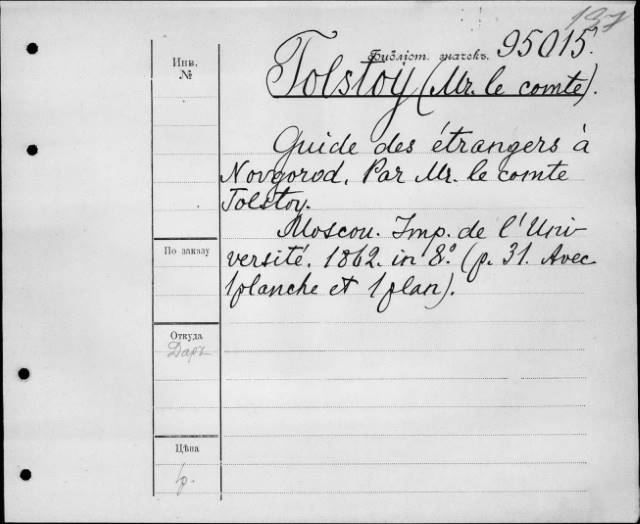 137
Инв.
№
Библіот. значекъ.
95015.
Tolstoy (Mr. le comte).
Guide des étrangers à
Novgorod. Par Mr. le comte
Tolstoy.
Moscou. Imp. de l'Uni-
versité. 1862. in 8.° (p. 31. Avec
1 planche et 1 plan).
По заказу
Откуда
Даръ
Цѣна